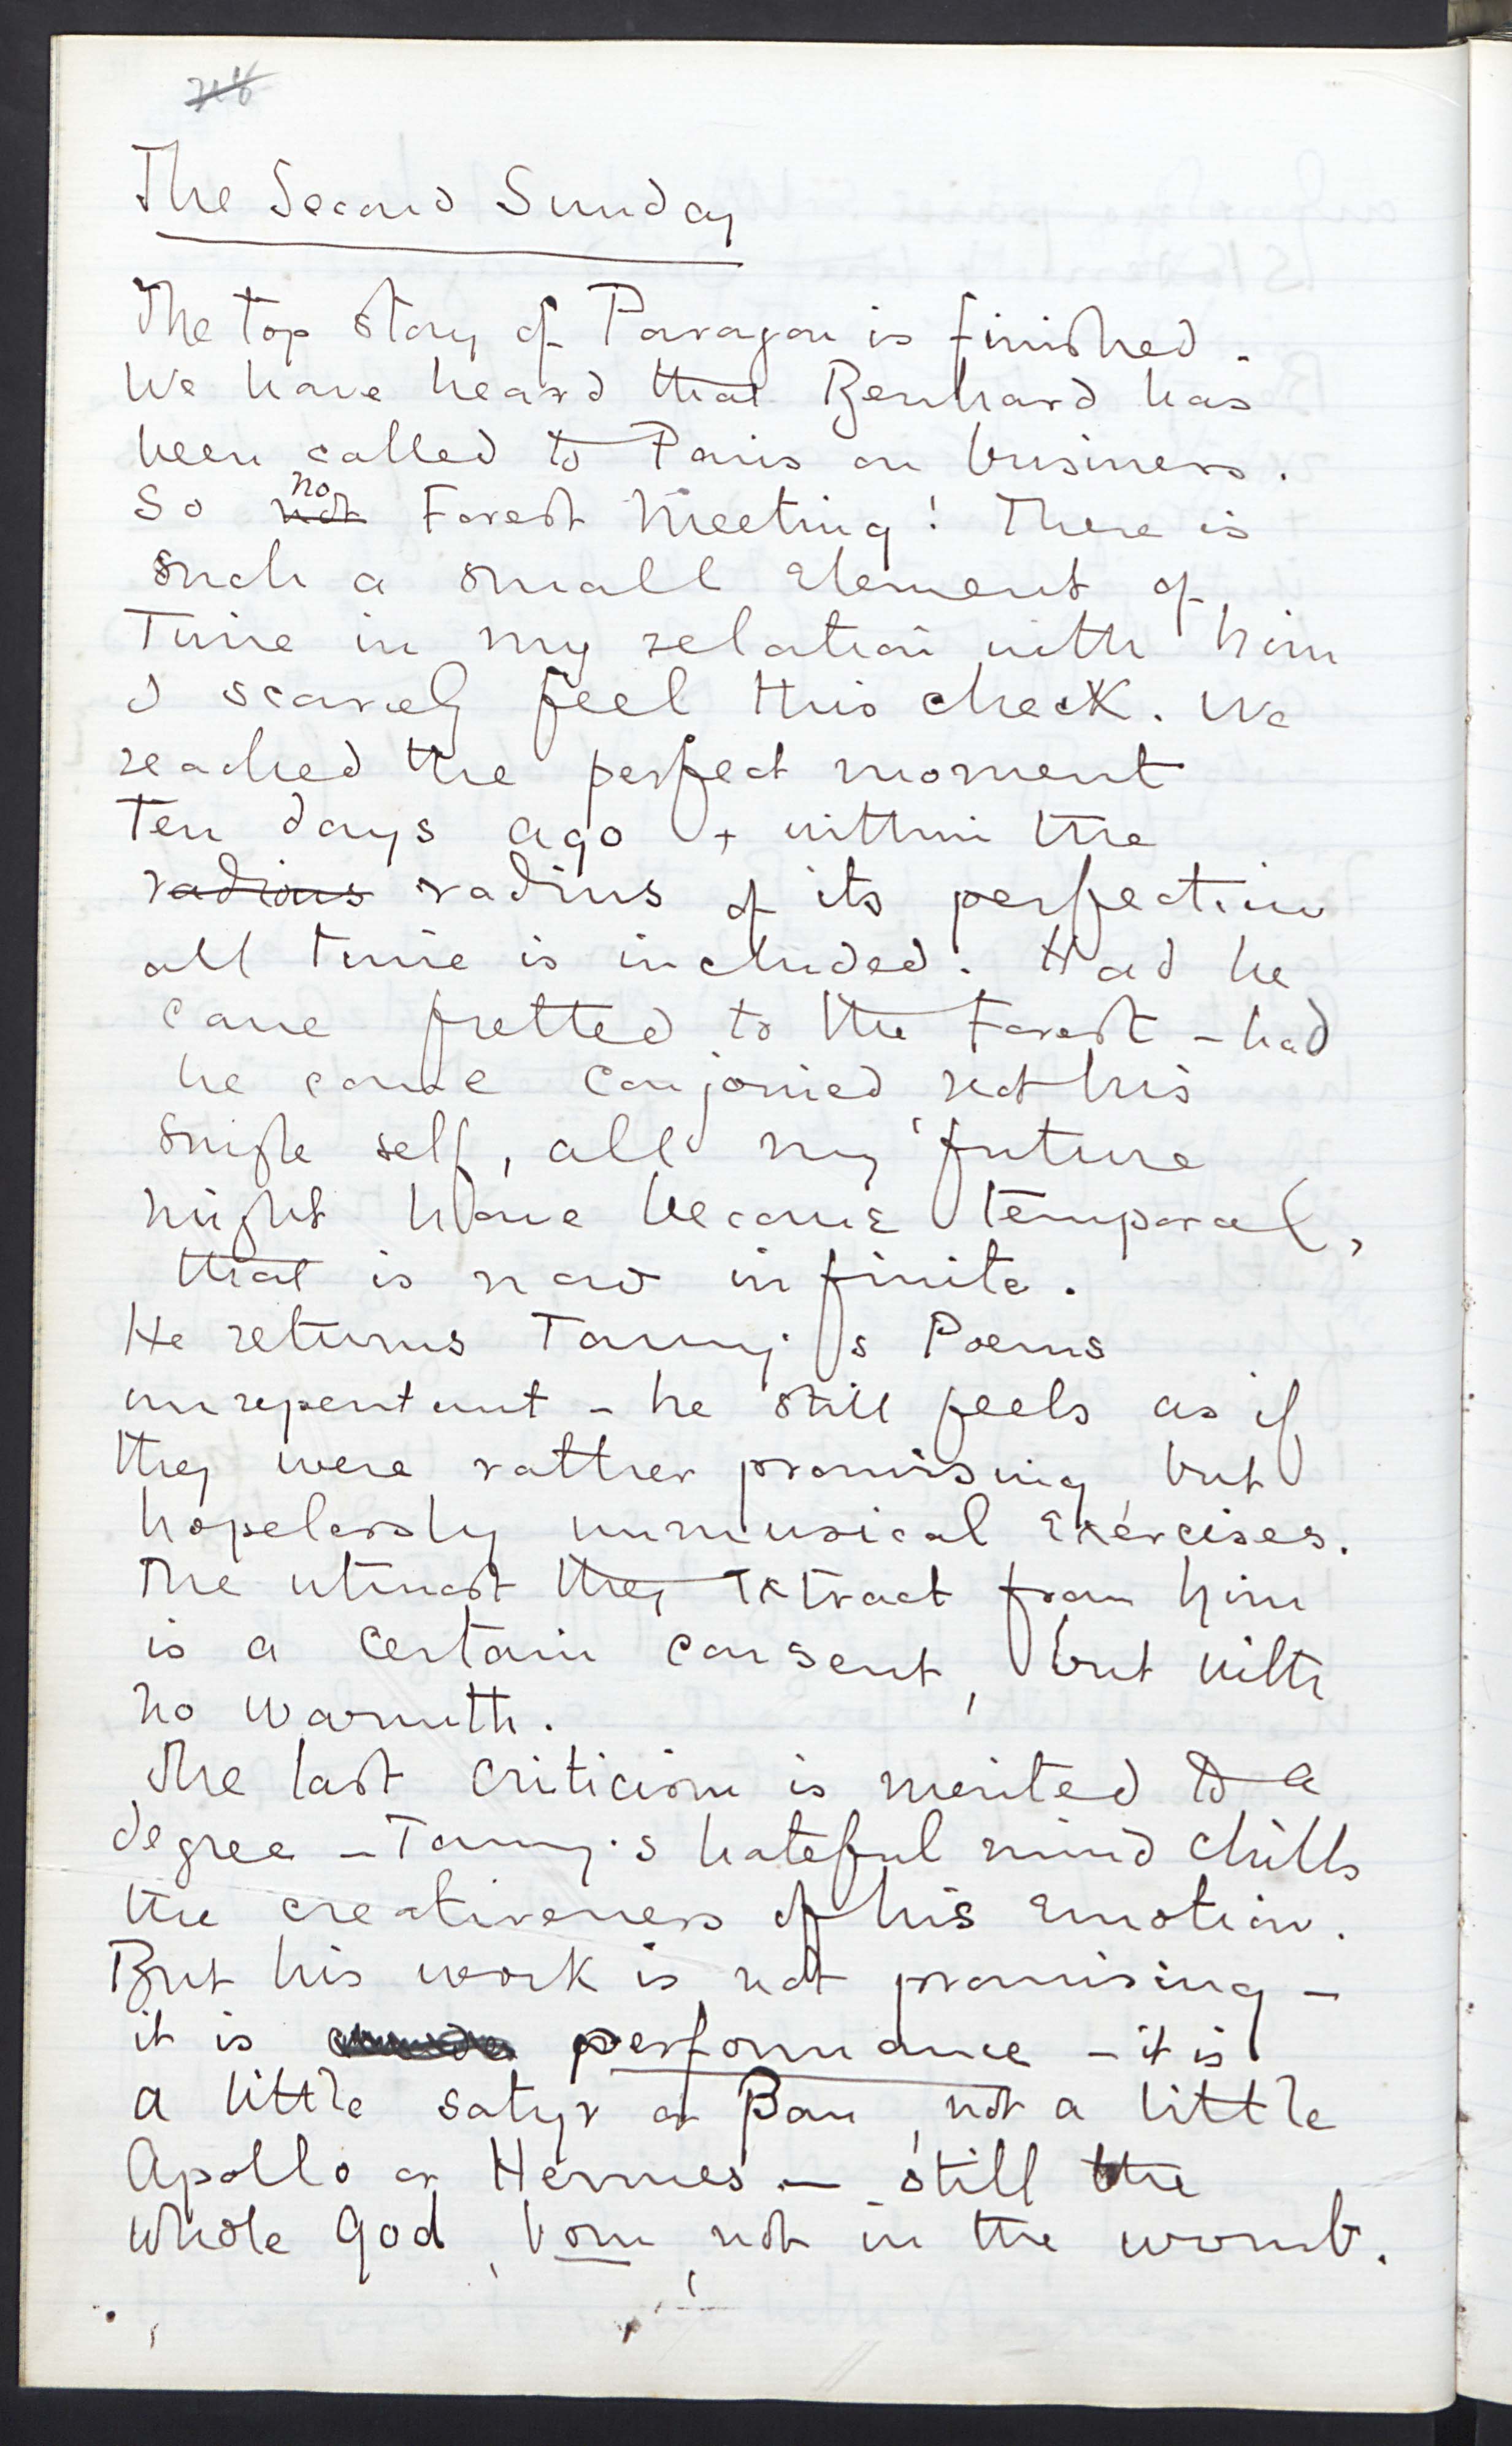 The Second Sunday
The top story of Paragon is finished.
We have heard that Bernhard has
been called to Paris on business.
So not no Forest Meeting! There is
such a small element of
Time in my relation with him
I scarcely feel this check. We
reached the perfect moment
ten days ago + within the
radious radius of its perfection
all time is included. Had he
come fretted to the Forest – had
he come conjoined not his
single self, all my future
might have become temporal,
that is now infinite.
He returns Tommy's Poems
unrepentant – he still feels as if
they were rather promising but
hopelessly unmusical exercises.
The utmost they extract from him
is a certain consent, but with
no warmth.
The last criticism is merited to a
degree – Tommy's hateful mind chills
the creativeness of his emotion.
But his work is not promising –
it is performance – it is
a little satyr or Pan, not a little
Apollo or Hermes – still the
whole god, born, not in the womb.